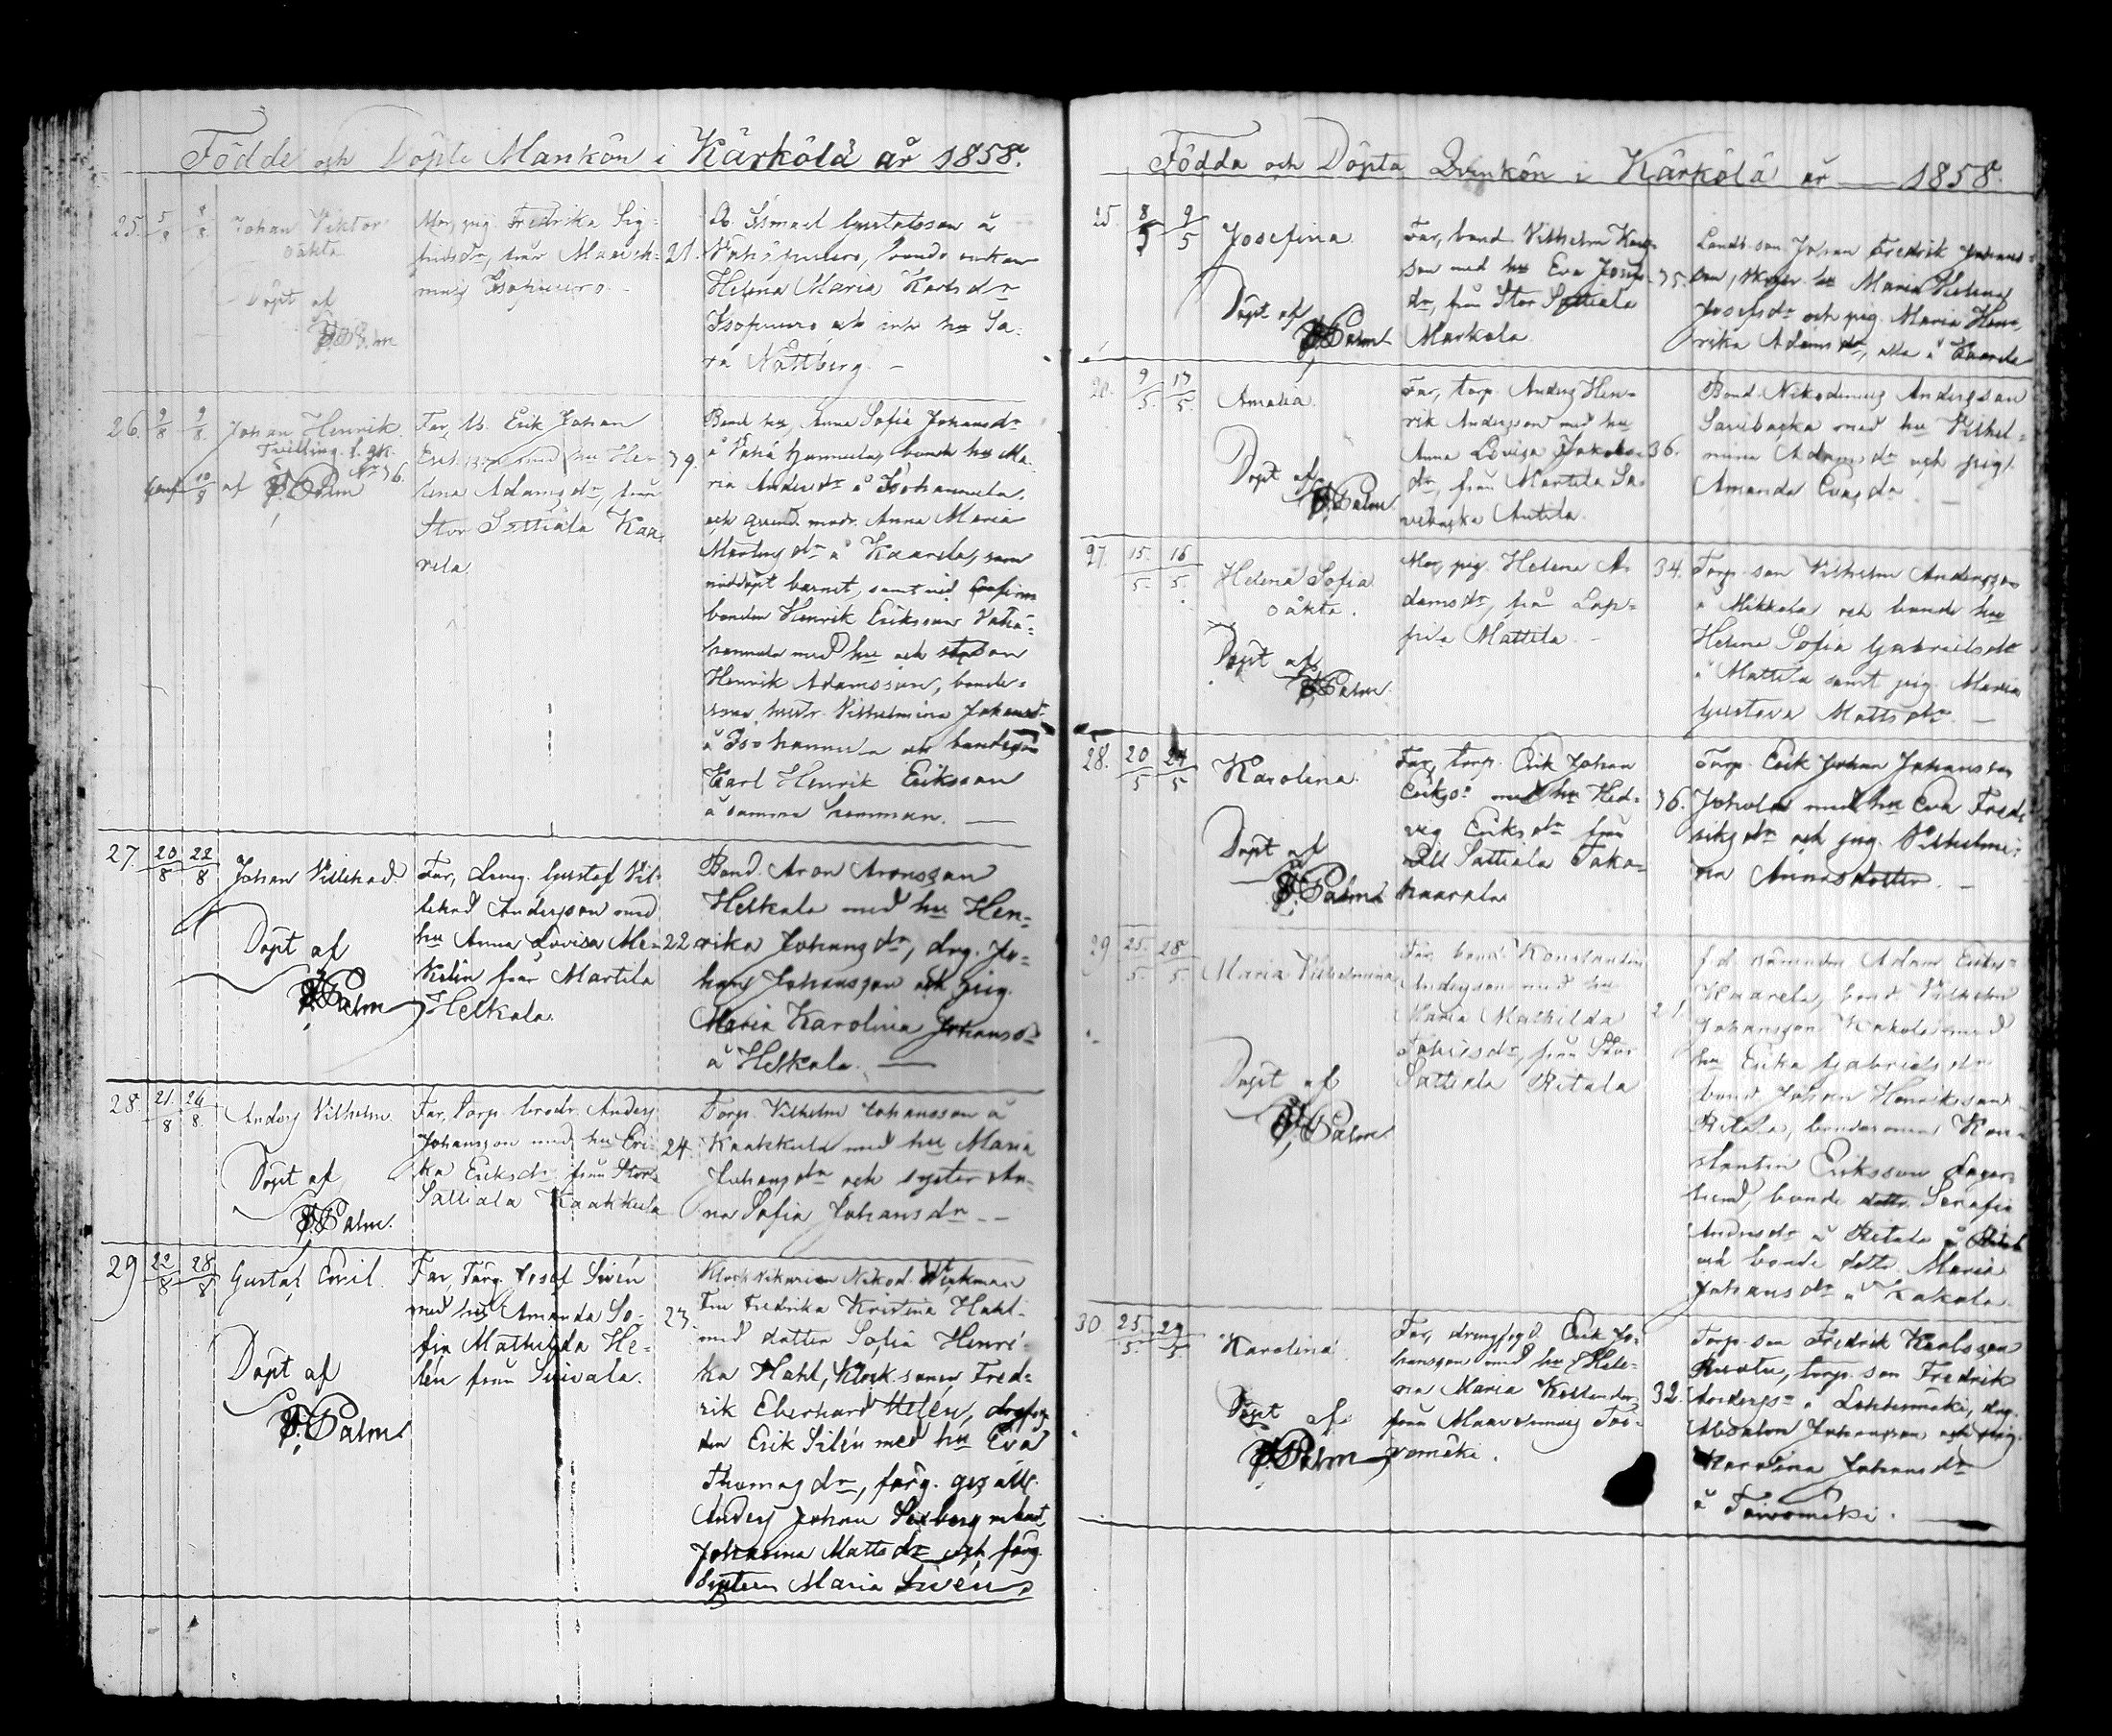 Födde och Döpte Mankön i Kärkölä år 1858.
25. 5/8 8/8 Johan Viktor
oäkta
Döpt af
Palm
Mor, pig. Fredrika Sig-
fridsdr, från Maaveh-
maa Isopuuro.
21.
Ismael Gustafsson å
Vähäpuuro, bonde enkan
Helena Maria Karlsdr
Isopuuro och inh. hu Sa-
ra Nättberg. —
26. 9/8 9/8 Johan Henrik.
Tvilling
Conf. 10/8 af Palm
Far, Erik Johan
Eriksson med hu He-
lena Adamsdr, från
Stor Sattiala Kaa-
rela.
39.
Bond. hu, Anna Sofia Johansdr
å Vähä Hannula, bonde hu Ma-
ria Andersdr å Isohannula,
och qvind. modr. Anna Maria
Mårtensdr å Kaarela, som
nöddöpt barnet, samt vid Confirm.
bonden Henrik Eriksson Vähä-
hannula med hu och
Henrik Adamsson, bonde-
sons hustr. Vilhelmina Johansdr
å Isohannula och bondeson
Karl Henrik Eriksson
å samma hemman. —
27. 20/8 22/8 Johan Villehad.
Döpt af
Palm
Far, dreng. Gustaf Vil-
lehad Andersson med
hu Anna Lovisa Me-
lin från Martila
Heikala.
22.
Bond. Aron Aronsson
Heikala med hu Hen-
rika Johansdr, drg. Jo-
hans Johansson och pig.
Maria Karolina Johansdr
å Heikala. —
28. 21/8 24/8. Anders Vilhelm.
Döpt af
Palm.
Far, Torp. brodr. Anders
Johansson med hu Eri-
ka Eriksdr från Stor
Sattiala Kaakkula
24.
Torp. Vilhelm Johansson å
Kaakkula med hu Maria
Johansdr och syster An-
na Sofia Johansdr. —
29 22/8 28/8 Gustaf Emil.
Döpt af
Palm
Far, Färg. Josef Sivén
med hu Amanda So-
fia Mathilda He-
lén från
23.
Nikod. Werkman
Fru Fredrika Kristina Hahl
med dotter Sofia Henri-
ka Hahl, Klock. sonen Fred-
rik Eberhard Helén, drgfog-
den Erik Silén med hu Eva
Thomasdr, färg. gesäll.
Anders Johan
Johanna Mattsdr och färg.
Systern Maria Sivén.
Födda och Döpta Qvinkön i Kärkölä år — 1858.
25. 8/5 9/5 Josefina.
Döpt af
Palm
Far, bond. Vilhelm Karls-
son med hu Eva Josefs-
dr, från Stor Sattiala
Markola.
35.
Landb. son Johan Fredrik Johans-
son, hu Maria Helena
Josefsdr och pig. Maria Hen-
rika Adamsdr, alla å Kaarela
26. 9/5. 13/5. Amalia.
Döpt af
Palm.
Far, torp. Anders Hen-
rik Andersson med hu
Anna Lovisa Jakobs-
dr, från Martila Sa-
vibacka Antila.
36.
Bond. Nikodemus Andersson
Savibacka med hu Vilhel-
mina Adamsdr och pig.
Amanda Evasdr. —
27. 15./5. 16/5. Helena Sofia
oäkta.
Döpt af
Palm.
Mor, pig. Helena A-
damsdr, från Lap-
pila Mattila. —
34.
Torp. son Vilhelm Andersson
å Mikkola och bonde hu
Helena Sofia Gabrielsdr
å Mattila samt pig. Maria
Gustava Mattsdr. —
28. 20/5 24/5 Karolina.
Döpt af
Palm
Far, torp. Erik Johan
Eriksson med hu Hed-
vig Eriksdr från
Sattiala Taka-
kaarela
36.
Torp. Erik Johan Johansson
Juhola med hu Eva Fred-
riksdr och pig. Vilhelmi-
na Annasdotter. —
29 25./5. 28/5 Maria Vilhelmina
Döpt af
Palm.
Far, bond. Konstantin
Andersson med hu
Maria Mathilda
Johansdr, från Stor
Sattiala Ritala
f.d. nämndm. Adam Eriks-
Kaarela, bond. Vilhelm
Johansson Kakola med
hu Erika Gabrielsdr
bond. Johan Henriksson
Ritala, bondesonen Kon-
stantin Eriksson
bonde dottr. Serafia
Andersdr å Ritala
och bonde dottr. Maria
Johansdr å Kakola.
30 25./5. 29/5. Karolina.
Döpt af
Palm
Far, drengfogd. Erik Jo-
hansson med hu Hele-
na Maria
från Maavehmaa Toi-
vomäki.
32.
Torp. son Fredrik Karlsson
torp. son Fredrik
Andersson å drg.
Absalon Johansson och pig.
Karolina Johansdr
å Toivomäki. —